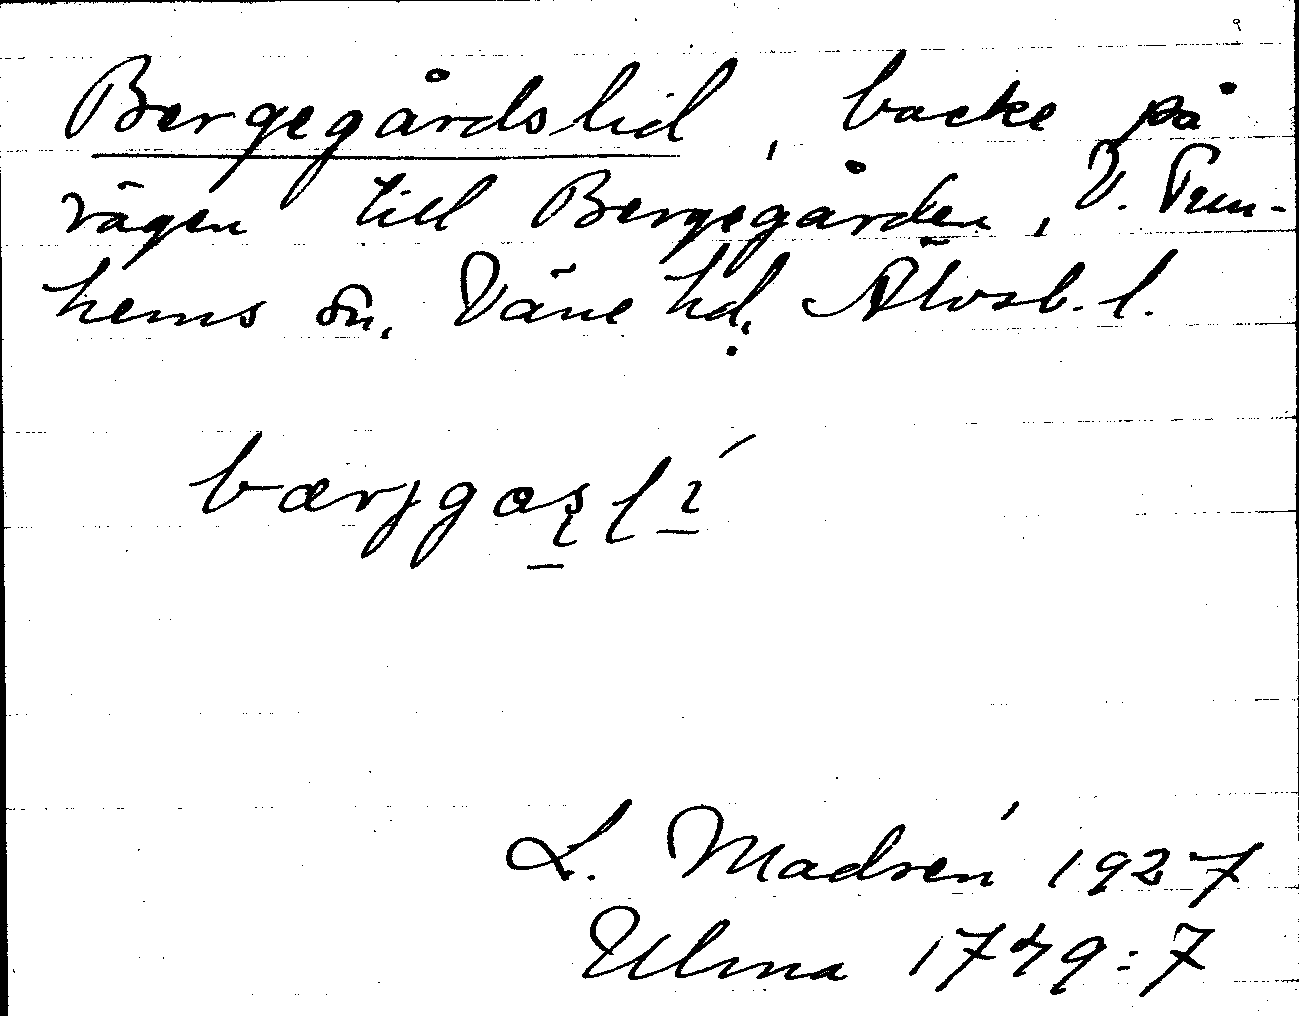 Bergegårdslid, backe på
vägen till Bergegården, V. Tun-
hems sn, Väne hd, Älvsb. l.
bærjgas̠lí̠
L. Madrén 1927
Ulma 1749:7